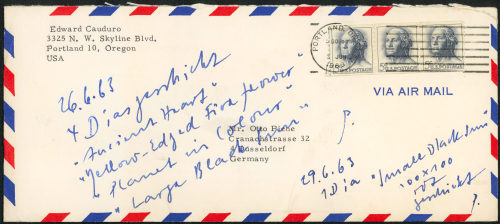 Edward Cauduro
3325 N. W. Skyline Blvd,
Portland 10, Oregon
USA
PORTLAND
1963
5¢ U.S. POSTAGE
VIA AIR MAIL
Mr. Otto Piene
Cranachstrasse 32
Düsseldorf
Germany
26.6.63
4 Dias geschickt
"Ancient Heart"
"Yellow-Edged Fire flower"
"Planet in Colour"
"Large Black Sun"
P.
29.6.63
1 Dia "Small Black Sun"
100 x 100
geschickt
P.